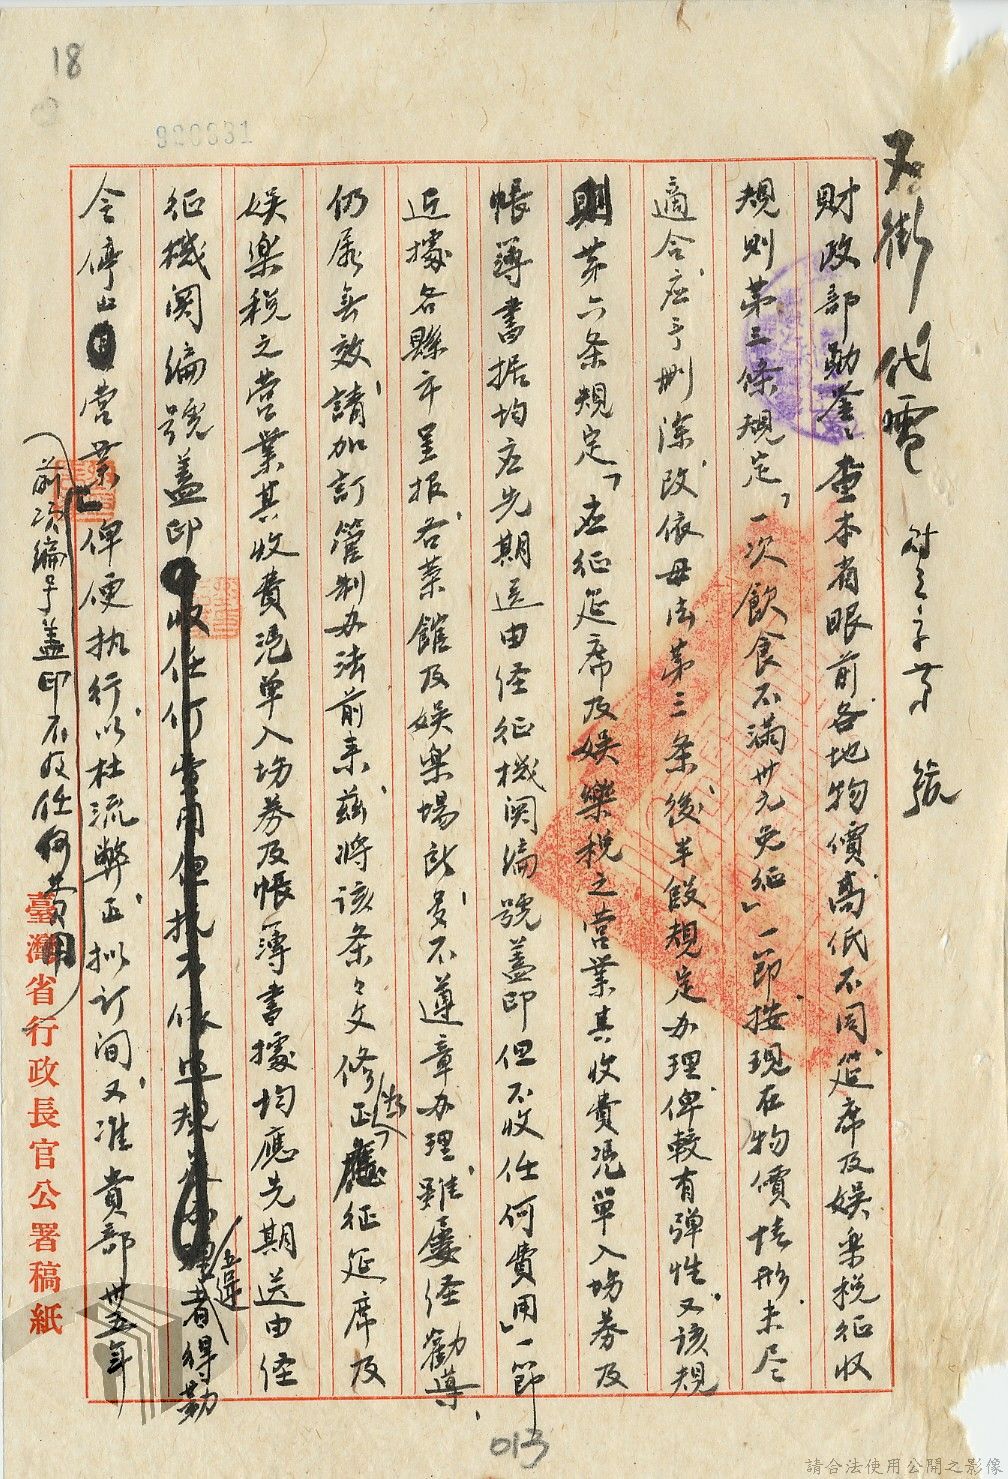 18
920631
代電 財 字第 號
財政部勛鑒查本省眼前各地物價高低不同筵席及娛樂稅征收
規則第三條規定「一次飲食不滿卅元免征」一節按現在物價情形未尽
適合应予刪除改依母法第三条後半段規定办理俾較有弹性又該規
則第六条規定「应征筵席及娛樂稅之营業其收費憑單入場券及
帳簿書据均应先期送由經征機関編號蓋印但不收任何費用」一節
近據各縣市呈报各菜館及娛樂場所多不遵章办理雖屢經勸導
仍屬無效請加訂管制办法前来茲將該条条文修正為「應征筵席及
娛樂稅之营業其收費憑單入場券及帳簿書據均應先期送由經
征機関編號蓋印 如違者得勒
令停止营業」俾便执行以杜流弊正拟訂间又准貴部卅五年
前項編号蓋印不收任何費用
臺灣省行政長官公署稿紙
013
請合法使用公開之影像